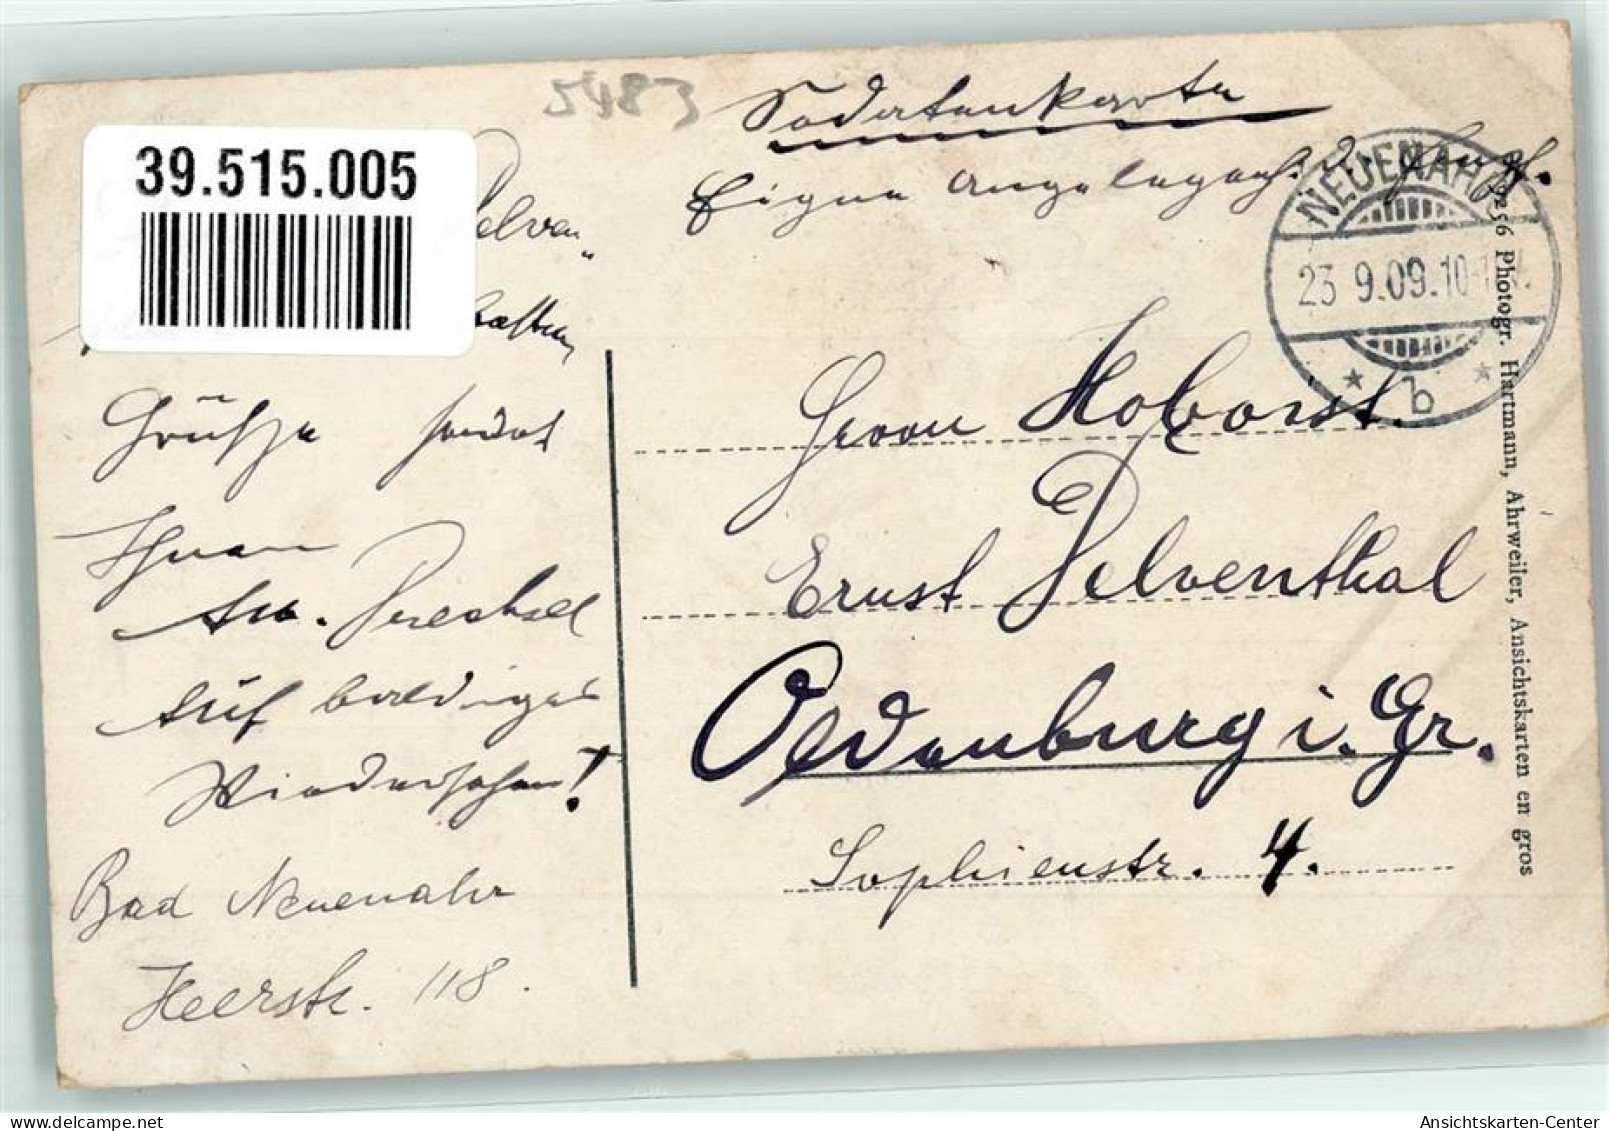 5483
39.515.005
Soldatenkarte
Eigne Angelegenh. d. Empf.
NEUENAHR
23 9.09.10-
* b *
Delven-
Grüße sendet
Ihnen
Aug. Drechsel
Auf baldiges
Wiedersehen!
Bad Neuenahr
Heerstr. 118.
Herrn Hoboist.
Ernst Delventhal
Oldenburg i. Gr.
Sophienstr. 4.
9256 Photogr. Hartmann, Ahrweiler, Ansichtskarten en gros
Ansichtskarten-Center